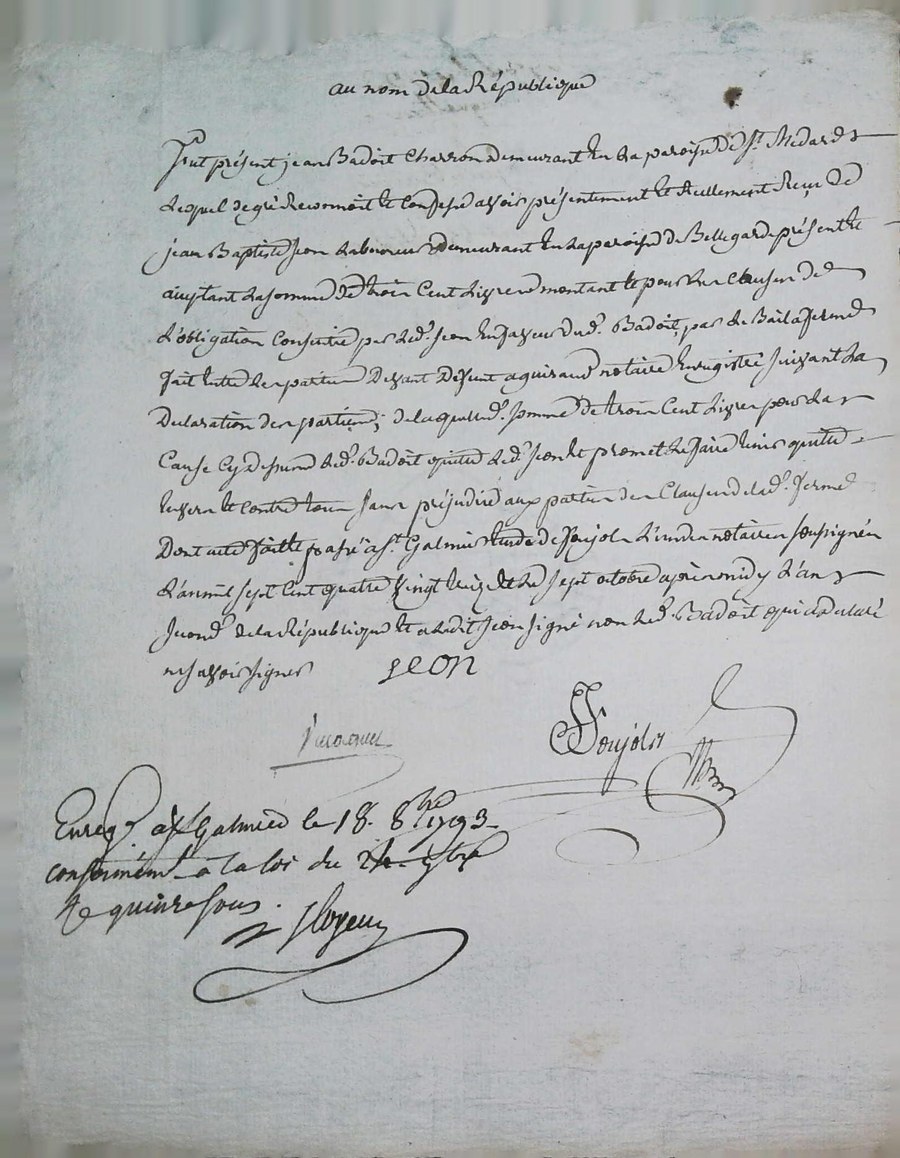 au nom de la République
Fut présent jean Badoit Charron demeurant En La paroisse De St. Medard
Lequel de gré Reconnoit et Confesse avoir présentement et Réellement Reçu de
jean Baptiste Jeon Laboureur demeurant En La paroisse de Bellegarde présent et
acceptant La somme de trois Cent Livres montant et pour Les Causes de
L'obligation Consentie par Led. Jeon En faveur dud. Badoit, par Le Bail a ferme
fait Entre Les parties Devant Defunt aguiraud notaire Enregistré suivant La
Declaration des parties; de laquelle d. somme de trois Cent Livres pour La
Cause Cy Dessus Led. Badoit quitte Led. Jeon et promet Le faire tenir quitte
Envers et Contre tous Sans préjudice aux parties des Clauses de lad. ferme
Dont acte fait et passé a St. Galmier Etude de Poujol L'un des notaires soussignés
L'an mil sept Cent quatre Vingt treize et Le sept octobre après midy L'an
second de la République et a Ledit Jeon signé non Led. Badoit qui a declaré
ne savoir signer jeon
Poujol
Enreg. a St Galmier le 18. 8bre 1793
conformémt. a la loi du 9bre
quinze sous.